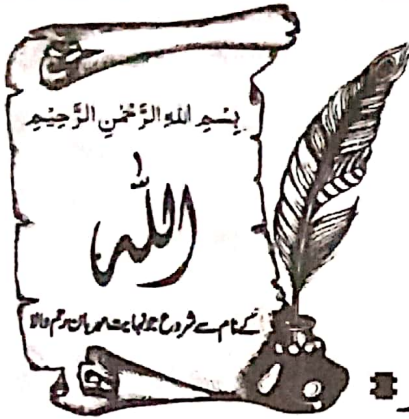 بِسْمِ اللهِ الرَّحْمٰنِ الرَّحِيْمِ
اللّٰه
کے نام سے شروع جو نہایت مہربان رحم والا